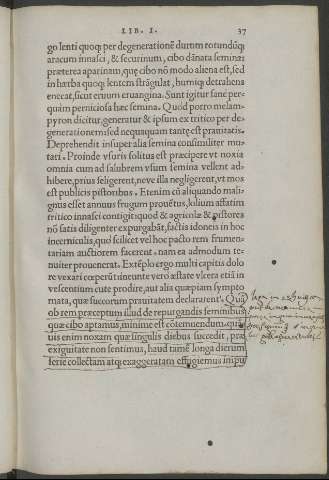 LIB. I. 37
go lenti quoq; per degenerationē durum rotundūq;
aracum innasci, & securinum, cibo dānata semina:
præterea aparinam, quę cibo nō modo aliena est, sed
in hærba quoq; lentem strāgulat, humiq; detrahens
enecat, sicut eruum eruangina. Sunt igitur sanè per-
quàm perniciosa hæc semina. Quod porrò melam-
pyron dicitur, generatur & ipsum ex tritico per de-
generationem: sed nequaquam tantę est prauitatis.
Deprehendit insuper alia semina consimiliter mu-
tari. Proinde vsuris solitus est præcipere vt noxia
omnia cum ad salubrem vsum semina vellent ad-
hibere, prius seligerent, neve illa negligerent, vt mos
est publicis pistoribus. Etenim cū aliquando mali-
gnus esset annus frugum prouētus, lolium affatim
tritico innasci contigit: quod & agricolæ & pistores
nō satis diligenter expurgabāt, factis idoneis in hoc
incerniculis, quò scilicet vel hoc pacto rem frumen-
tariam auctiorem facerent, nam ea admodum te-
nuiter prouenerat. Extēplo ergo multi capitis dolo
re vexari cœperūt: ineunte vero æstate vlcera etiā in
vescentium cute prodire, aut alia quæpiam sympto
mata, quæ succorum prauitatem declararent. Quā
ob rem præceptum illud de repurgandis seminibus
quæ cibo aptamus, minimè est cōtemnendum. quā-
uis enim noxam quæ singulis diebus succedit, præ
exiguitate non sentimus, haud tamē longa dierum
serie collectam atq; exaggeratam effugiemus in pu